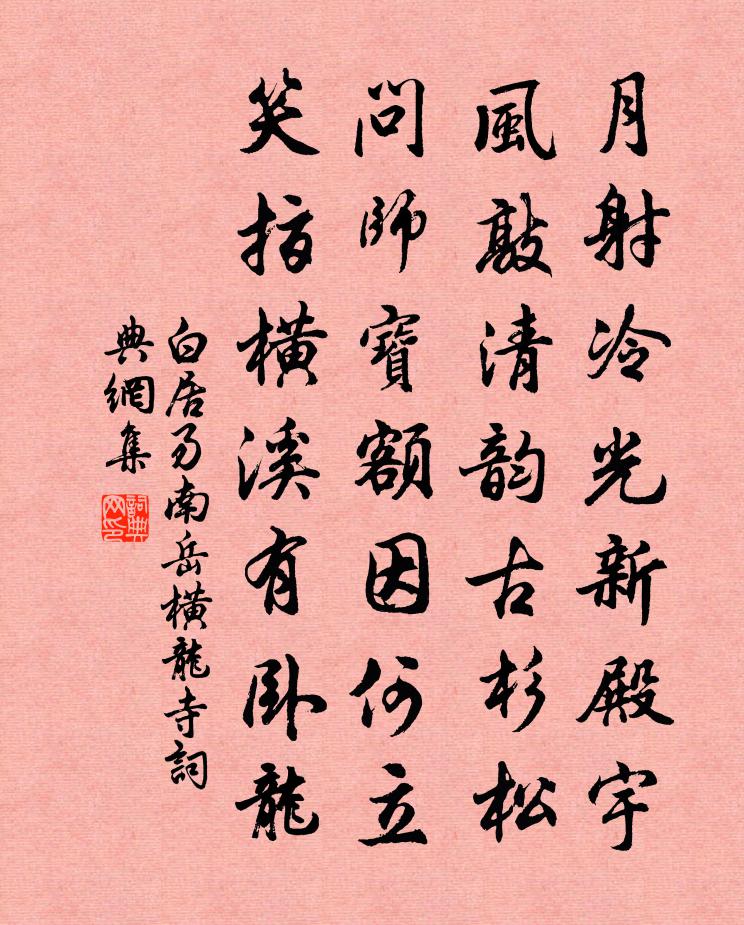 月射冷光新殿宇
風敲清韵古杉松
問師寶額因何立
笑指橫溪有卧龍
白居易南岳橫龍寺詞
典網集
詞典网印